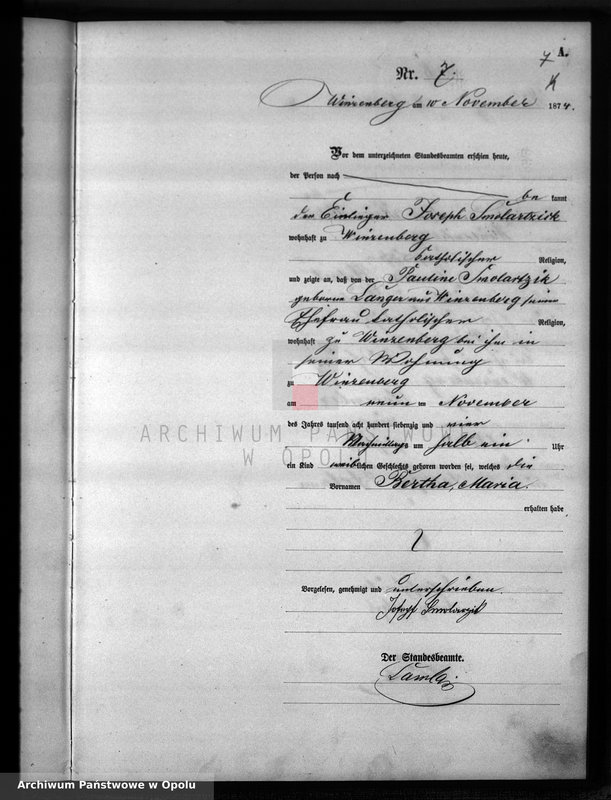 7 A.
Nr. 7.
Winzenberg am 10 November 1874.
Vor dem unterzeichneten Standesbeamten erschien heute,
der Person nach
be kannt
der Einlieger Joseph Smolartzick
wohnhaft zu Winzenberg
katholischer Religion,
und zeigte an, daß von der Pauline Smolartzik
geborene Langer aus Winzenberg seiner
Ehefrau katholischer Religion,
wohnhaft zu Winzenberg bei ihm in
seiner Wohnung
zu Winzenberg
am neun ten November
des Jahres tausend acht hundert siebenzig und vier
Nachmittags um halb ein Uhr
ein Kind weiblichen Geschlechts geboren worden sei, welches die
Vornamen Bertha, Maria
erhalten habe
Vorgelesen, genehmigt und unterschrieben
Josef Smolarzik
Der Standesbeamte.
ARCHIWUM PAŃSTWOWE
W OPOLU
Archiwum Państwowe w Opolu